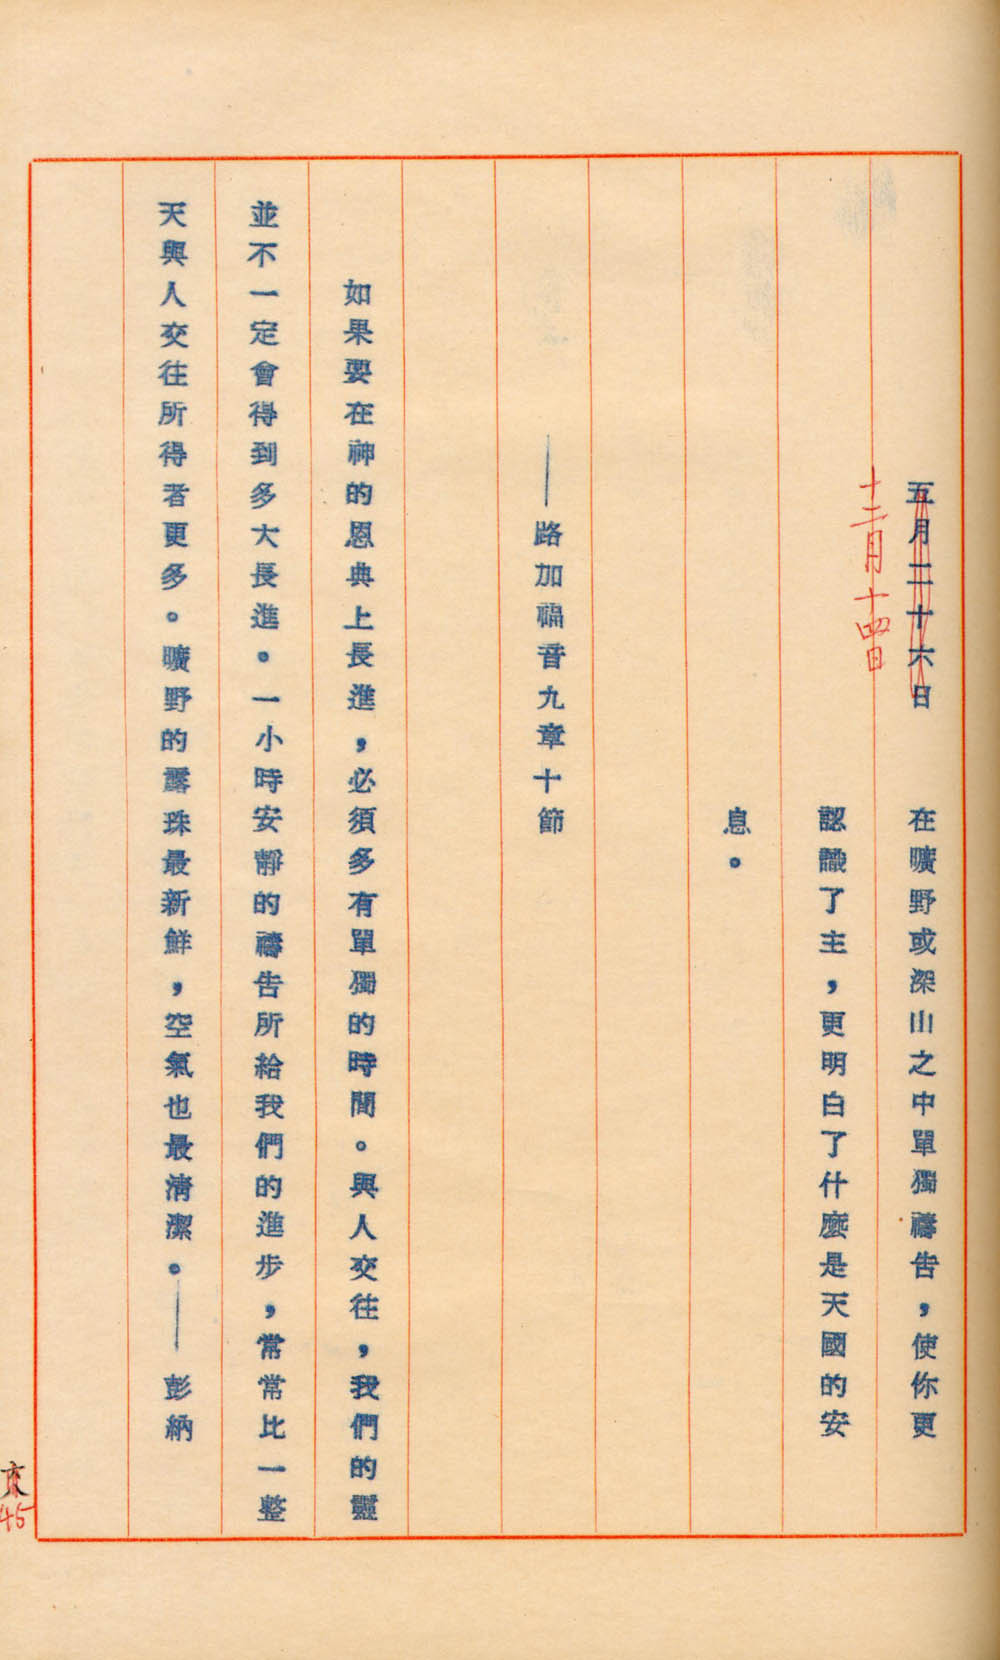 五月二十六日
在曠野或深山之中單獨禱告，使你更
十二月十四日
認識了主，更明白了什麼是天國的安
息。
——路加福音九章十節
如果要在神的恩典上長進，必須多有單獨的時間。與人交往，我們的靈
並不一定會得到多大長進。一小時安靜的禱告所給我們的進步，常常比一整
天與人交往所得者更多。曠野的露珠最新鮮，空氣也最清潔。——彭納
45